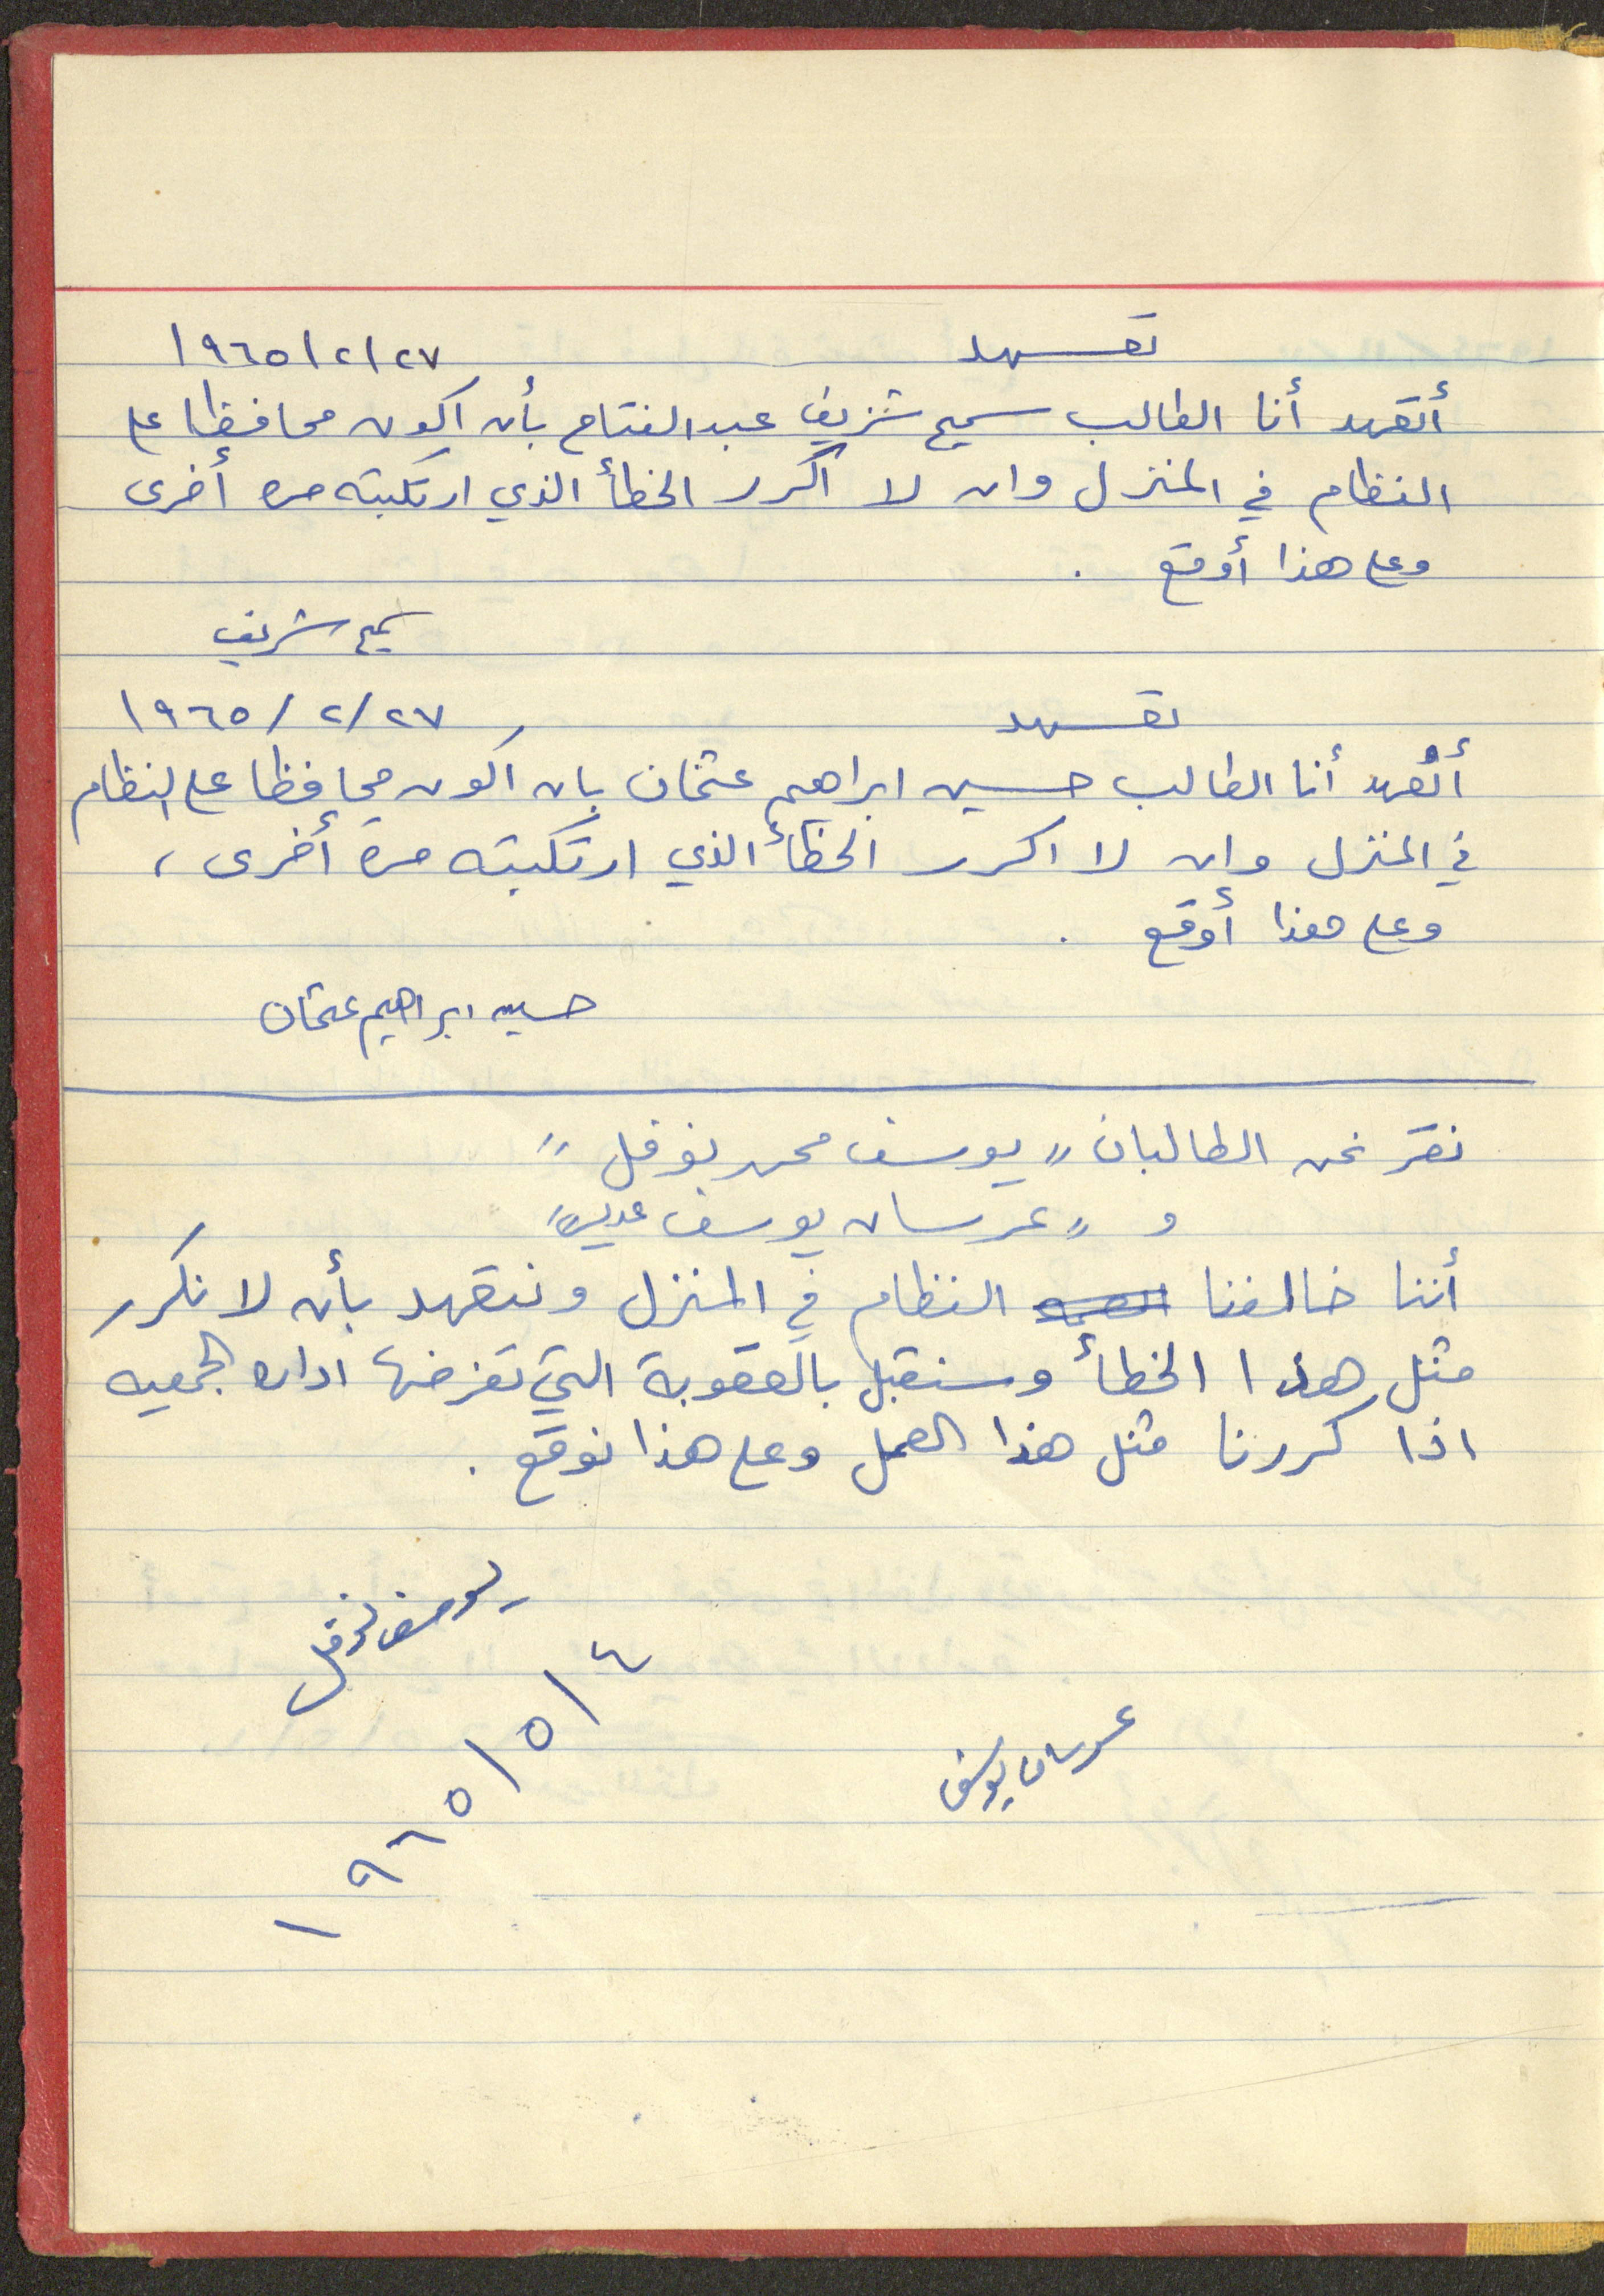 تعهد ٢٧/٢/١٩٦٥
أتعهد أنا الطالب سميح شريف عبد الفتاح بأن اكون محافظا على
النظام في المنزل وان لا اكرر الخطأ الذي ارتكبته مره أخرى
وعلى هذا أوقع .
سميح شريف
تعهد ٢٧/٢/١٩٦٥
أتعهد أنا الطالب حسين ابراهيم عثمان بان اكون محافظا على النظام
في المنزل وان لا اكرر الخطأ الذي ارتكبته مرة أخرى ،
وعلى هذا أوقع .
حسين ابراهيم عثمان
نقر نحن الطالبان " يوسف محمد نوفل "
و " عرسان يوسف "
أننا خالفنا النظام في المنزل ونتعهد بأن لا نكرر
مثل هذا الخطأ وسنقبل بالعقوبة التي تفرضها اداره الجمعيه
اذا كررنا مثل هذا العمل وعلى هذا نوقع .
يوسف نوفل
٤/٥/١٩٦٥
عرسان يوسف